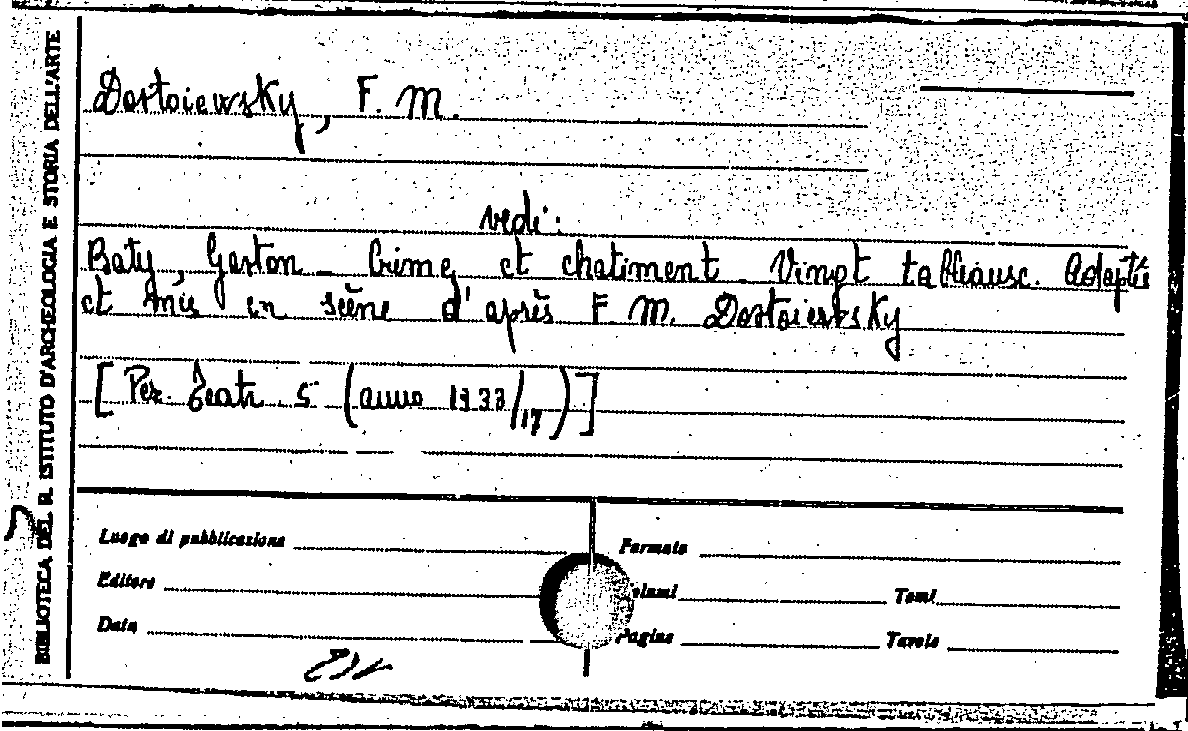 BIBLIOTECA DEL R. ISTITUTO D'ARCHEOLOGIA E STORIA DELL'ARTE
Dostoiewsky, F. M.
vedi:
Baty, Gaston - Crime et chatiment - Vingt tableaux. Adaptés
et mis en scène d'après F. M. Dostoiewsky
[Per. Teatr. 5 (anno 1933/17)]
Luogo di pubblicazione Formato
Editore Volumi Tomi
Data Pagine Tavole